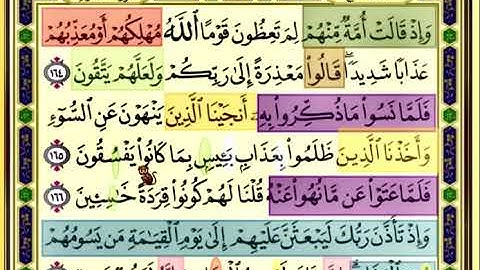 وَإِذْ قَالَتْ أُمَّةٌ مِّنْهُمْ لِمَ تَعِظُونَ قَوْمًا ٱللَّهُ مُهْلِكُهُمْ أَوْ مُعَذِّبُهُمْ
عَذَابًا شَدِيدًا ۖ قَالُوا۟ مَعْذِرَةً إِلَىٰ رَبِّكُمْ وَلَعَلَّهُمْ يَتَّقُونَ ١٦٤
فَلَمَّا نَسُوا۟ مَا ذُكِّرُوا۟ بِهِۦٓ أَنجَيْنَا ٱلَّذِينَ يَنْهَوْنَ عَنِ ٱلسُّوٓءِ
وَأَخَذْنَا ٱلَّذِينَ ظَلَمُوا۟ بِعَذَابٍۭ بَـِٔيسٍۭ بِمَا كَانُوا۟ يَفْسُقُونَ ١٦٥
فَلَمَّا عَتَوْا۟ عَن مَّا نُهُوا۟ عَنْهُ قُلْنَا لَهُمْ كُونُوا۟ قِرَدَةً خَـٰسِـِٔينَ ١٦٦
وَإِذْ تَأَذَّنَ رَبُّكَ لَيَبْعَثَنَّ عَلَيْهِمْ إِلَىٰ يَوْمِ ٱلْقِيَـٰمَةِ مَن يَسُومُهُمْ